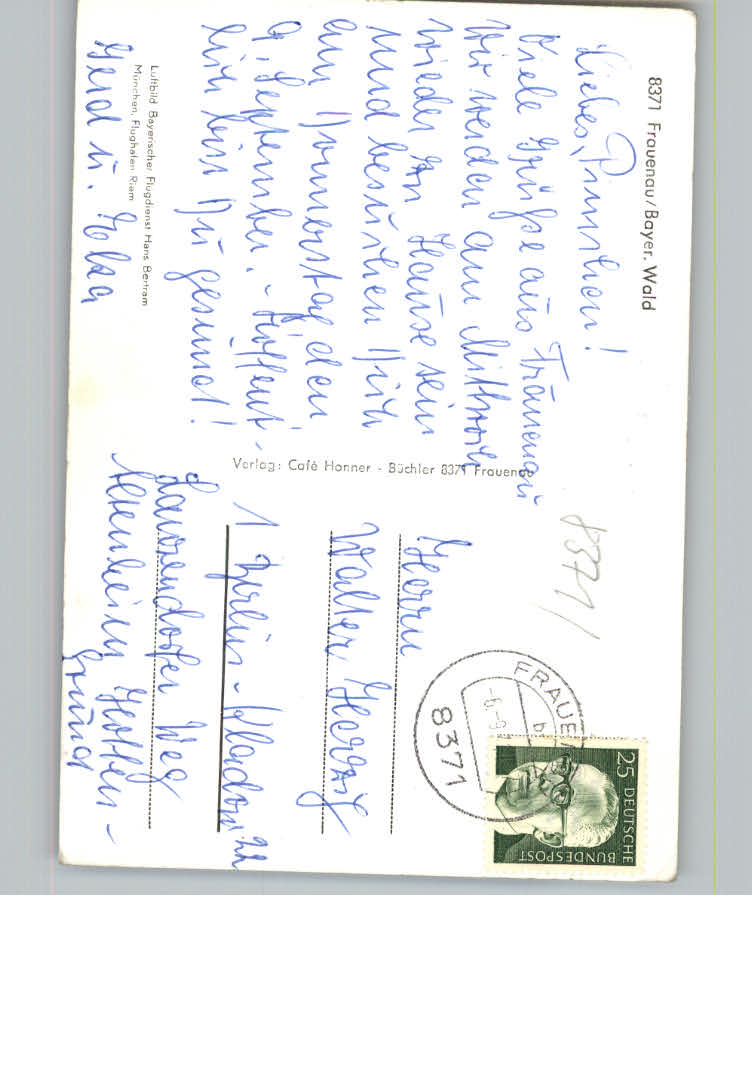 8371 Frauenau/Bayer. Wald
Liebes,
Viele Grüße aus Frauenau
Wir werden am Mittwoch
wieder zu Hause sein
und besuchen Dich
am Donnerstag den
9. September. - Hoffent-
lich bist Du gesund!
Gerd u.
Luftbild Bayerischer Flugdienst Hans Bertram
München, Flughafen Riem
Verlag: Café Honner - Büchler 8371 Frauenau
8371
FRAUEN
-6.-9
b
8371
25 DEUTSCHE
BUNDESPOST
Herrn
Walter
1 Berlin - Kladow
Weg